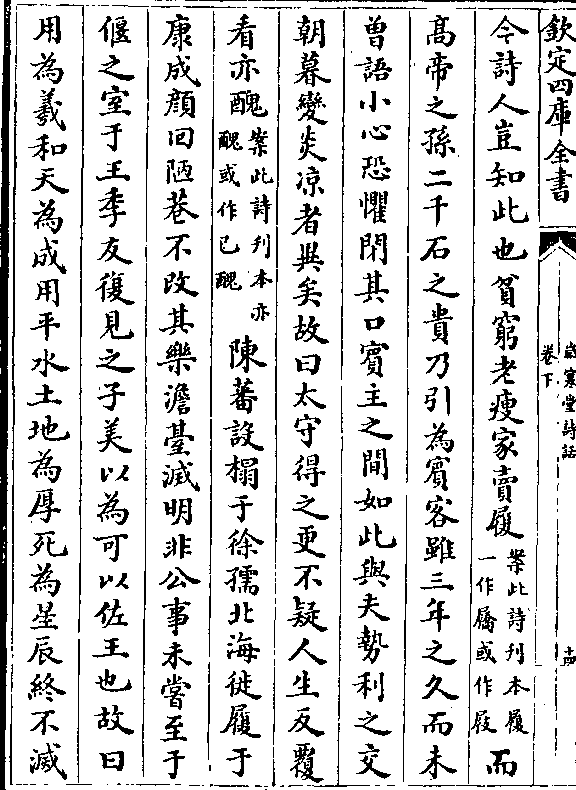 欽定四庫全書
歲寒堂詩話
卷下
十四
今詩人豈知此也貧窮老瘦家賣履案此詩刊本履一作屩或作屐而
高帝之孫二千石之貴乃引為賓客雖三年之久而未
曽語小心恐懼閉其口賓主之間如此與夫勢利之交
朝暮變炎凉者異矣故曰太守得之更不疑人生反覆
看亦醜案此詩刊本亦醜或作已醜陳蕃設榻于徐孺北海徙履于
康成顔回陋巷不改其樂澹臺滅明非公事未嘗至于
偃之室于王季友復見之子美以為可以佐王也故曰
用為羲和天為成用平水土地為厚死為星辰終不滅